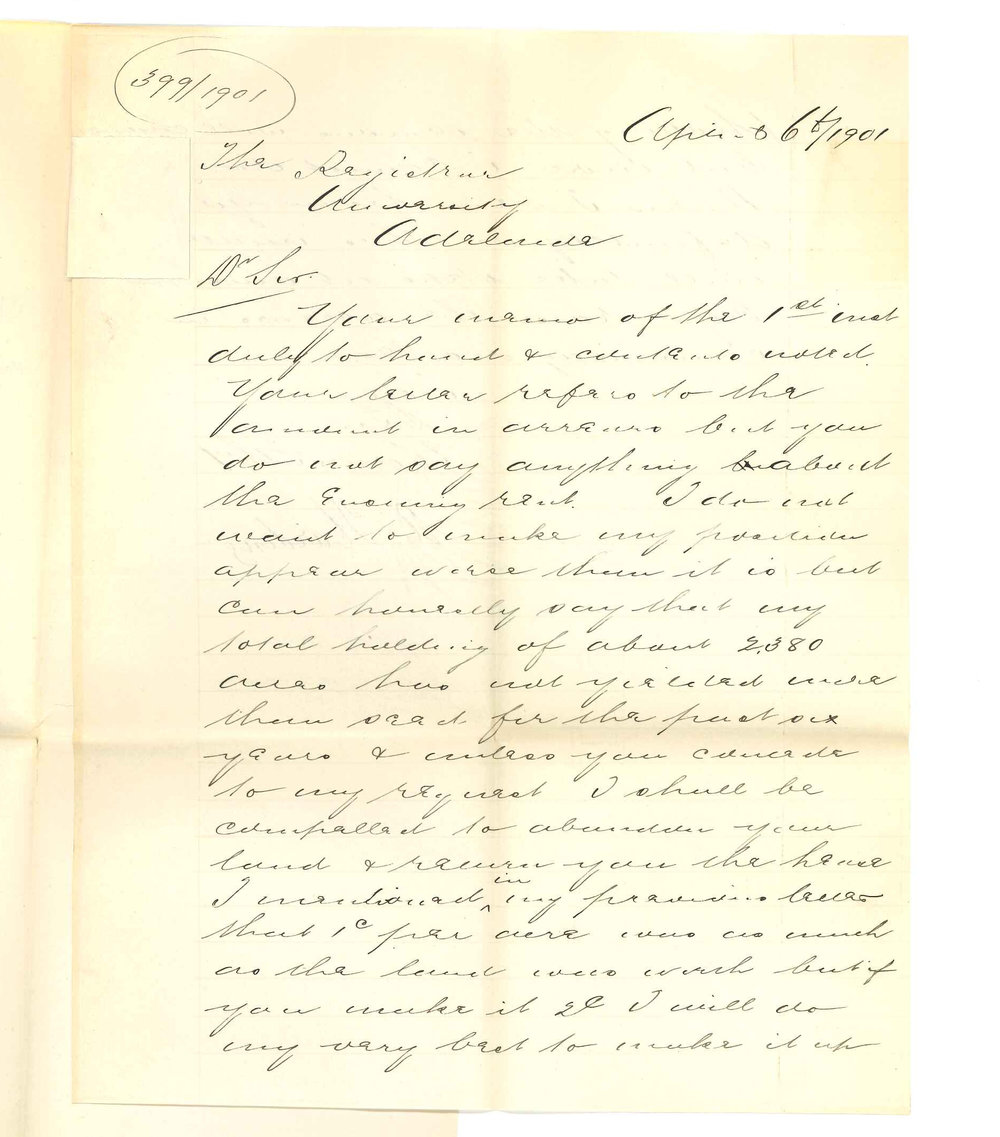 399/1901
April 6th/1901
The Registrar
University
Adelaide
Dr Sir.
Your memo of the 1st inst
duly to hand & contents noted.
Your letter refers to the
amount in arrears but you
do not say anything about
the Ensuing rent. I do not
want to make my position
appear worse than it is but
can honestly say that my
total holding of about 2,380
acres has not yielded more
than seed for the past six
years & unless you concede
to my request I shall be
compelled to abandon your
land & return you the lease
I mentioned in my previous letter
that 1d per acre was as much
as the land was worth but if
you make it 2d I will do
my very best to make it up